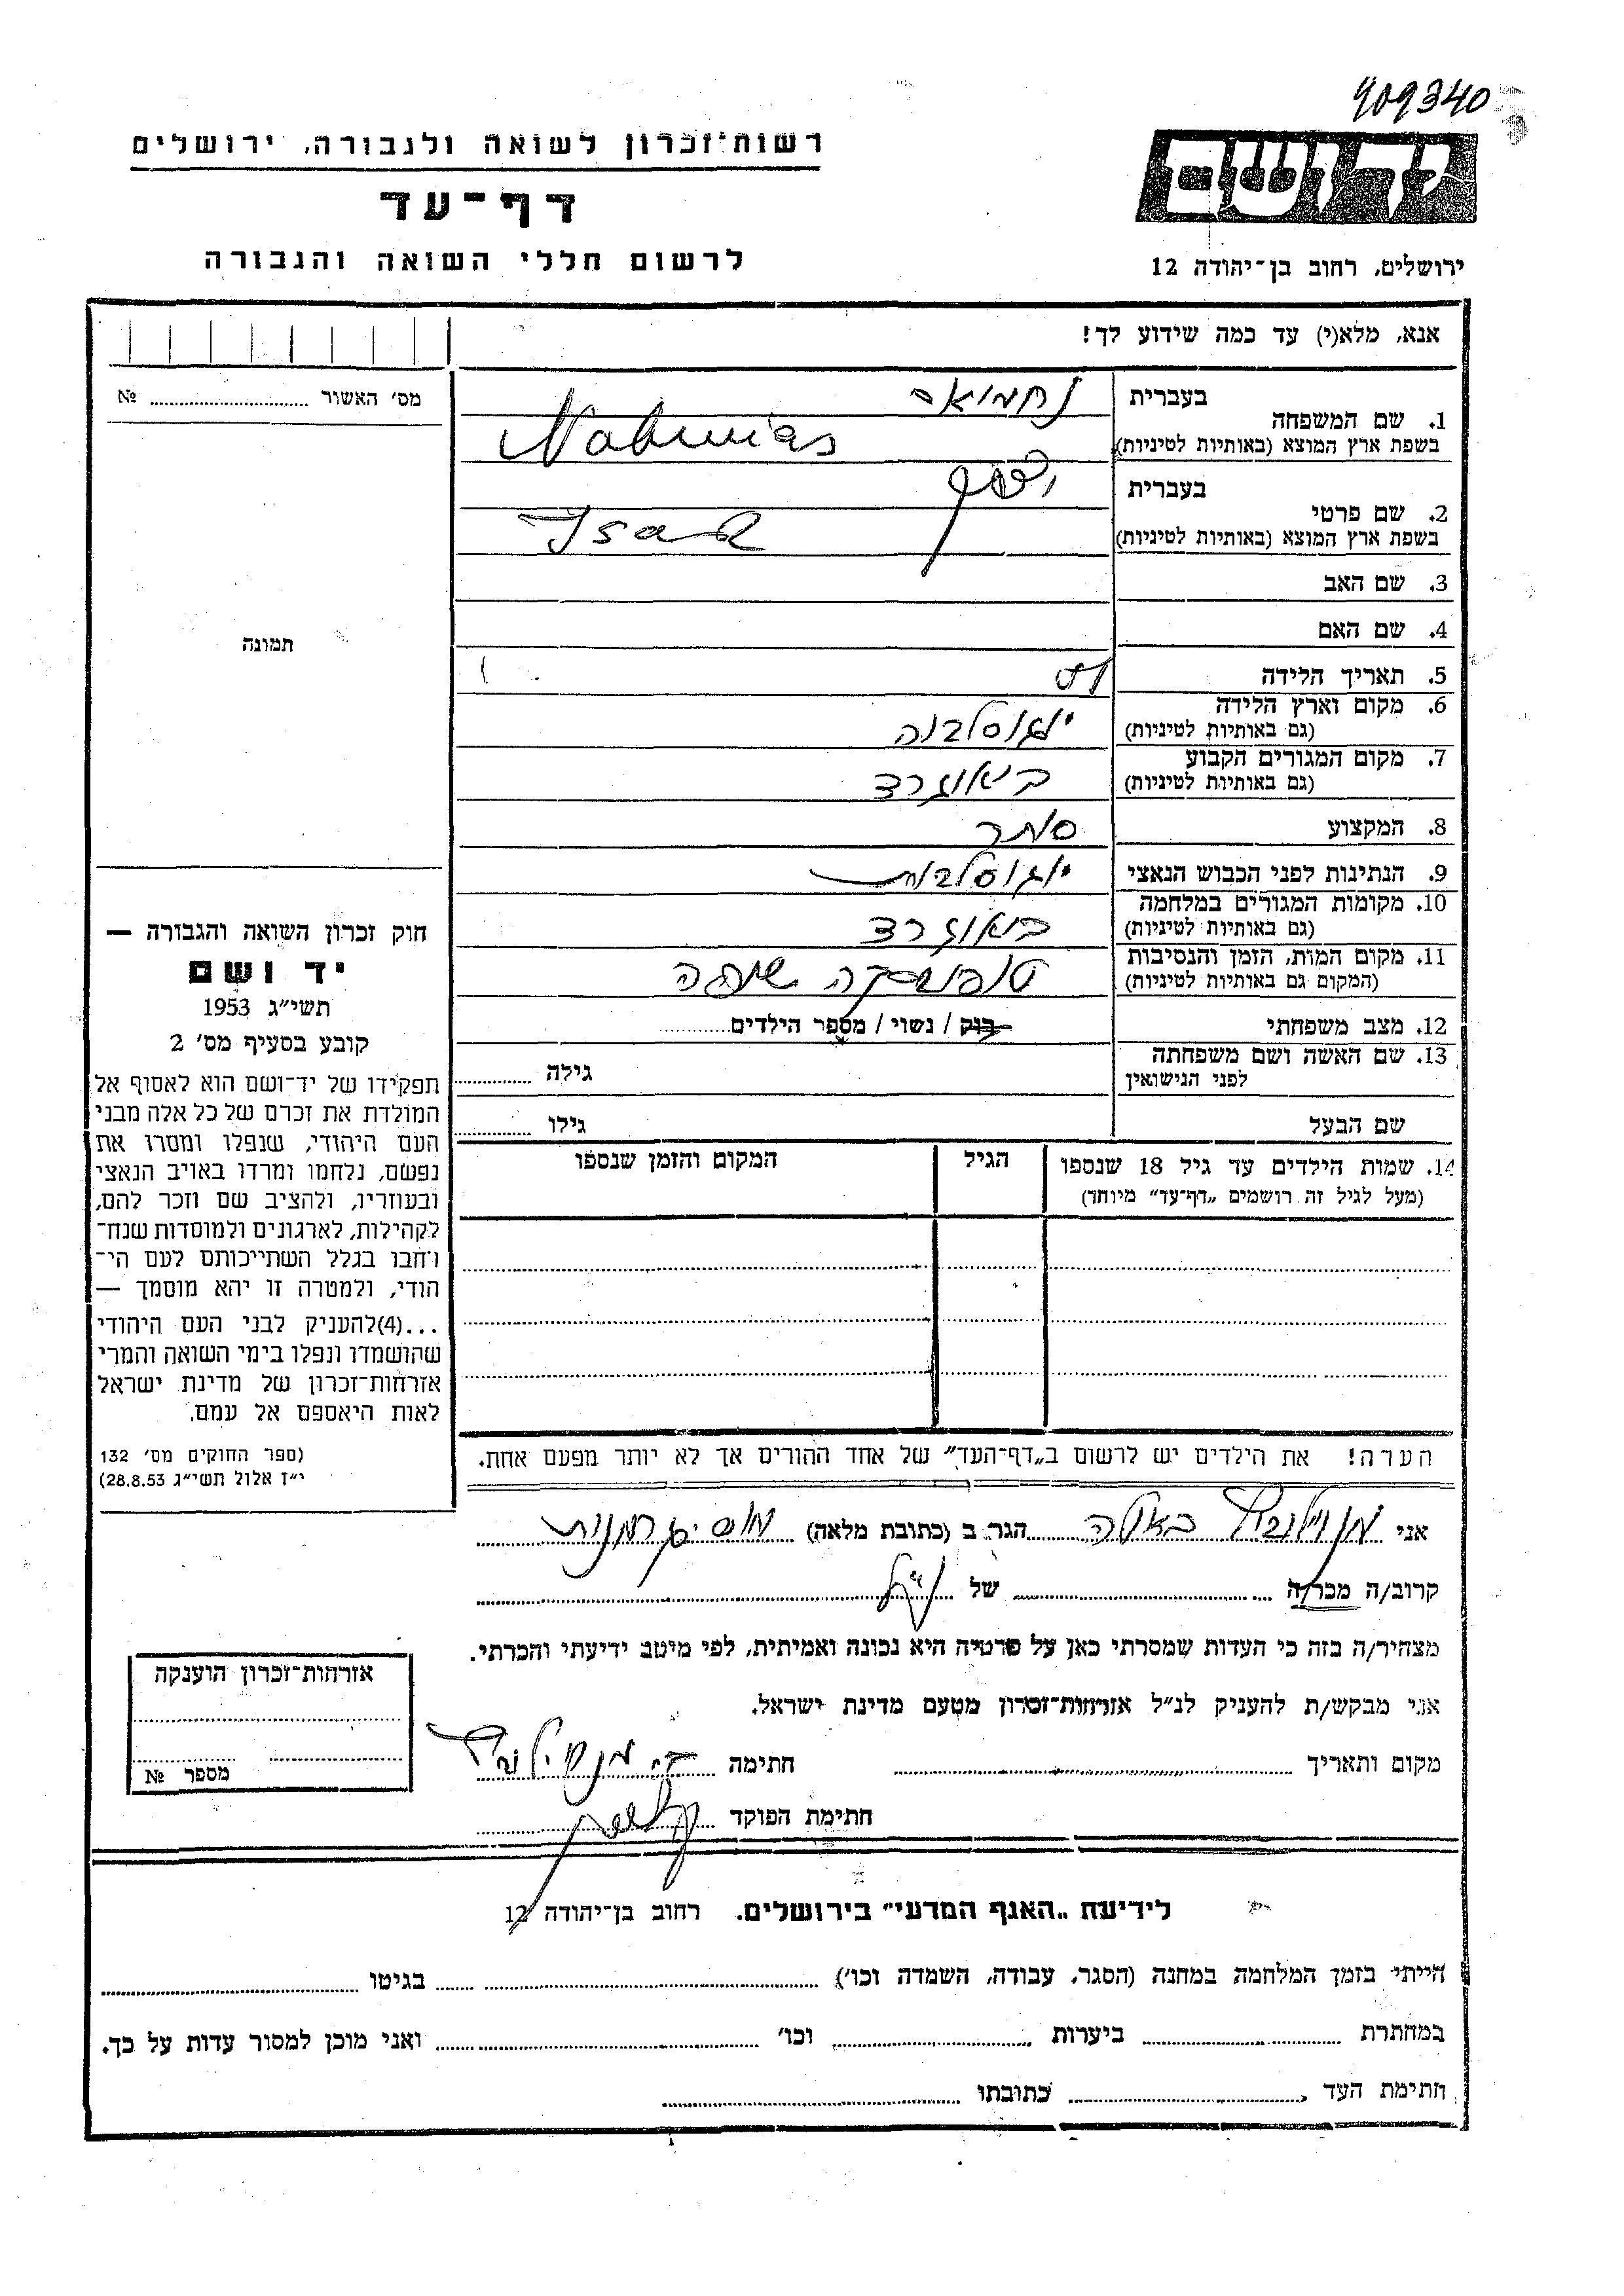 909340
רשות־זכרון לשואה ולגבורה, ירושלים
דף־עד
לרשום חללי השואה והגבורה
יד ושם
ירושלים, רחוב בן־יהודה 12
אנא, מלא(י) עד כמה שידוע לך!
מס׳ האשור № 
תמונה
1. שם המשפחה
בעברית
נחמיאס
בשפת ארץ המוצא (באותיות לטיניות)
Nahmias
2. שם פרטי
בעברית
בשפת ארץ המוצא (באותיות לטיניות)
Isak
3. שם האב
4. שם האם
5. תאריך הלידה
6. מקום וארץ הלידה
(גם באותיות לטיניות)
יוגוסלביה
7. מקום המגורים הקבוע
(גם באותיות לטיניות)
ביאוגרד
8. המקצוע סוחר
9. הנתינות לפני הכבוש הנאצי יוגוסלבית
10. מקומות המגורים במלחמה
(גם באותיות לטיניות)
ביאוגרד
11. מקום המות, הזמן והנסיבות
(המקום גם באותיות לטיניות)
12. מצב משפחתי רווק / נשוי / מספר הילדים
13. שם האשה ושם משפחתה
לפני הנישואין
גילה
שם הבעל גילו
14. שמות הילדים עד גיל 18 שנספו
(מעל לגיל זה רושמים „דף־עד” מיוחד)
הגיל
המקום והזמן שנספו
הערה! את הילדים יש לרשום ב„דף־העד” של אחד ההורים אך לא יותר מפעם אחת.
חוק זכרון השואה והגבורה —
יד ושם
תשי״ג 1953
קובע בסעיף מס׳ 2
תפקידו של יד־ושם הוא לאסוף אל
המולדת את זכרם של כל אלה מבני
העם היהודי, שנפלו ומסרו את
נפשם, נלחמו ומרדו באויב הנאצי
ובעוזריו, ולהציב שם וזכר להם,
לקהילות, לארגונים ולמוסדות שנח־
רבו בגלל השתייכותם לעם הי־
הודי, ולמטרה זו יהא מוסמך —
...(4) להעניק לבני העם היהודי
שהושמדו ונפלו בימי השואה והמרי
אזרחות־זכרון של מדינת ישראל
לאות היאספם אל עמם.
(ספר החוקים מס׳ 132
י״ז אלול תשי״ג 28.8.53)
אני הגר ב (כתובת מלאה)
קרוב/ה מכר/ה של
מצהיר/ה בזה כי העדות שמסרתי כאן על פרטיה היא נכונה ואמיתית, לפי מיטב ידיעתי והכרתי.
אני מבקש/ת להעניק לנ״ל אזרחות־זכרון מטעם מדינת ישראל.
מקום ותאריך חתימה
חתימת הפוקד
אזרחות־זכרון הוענקה
מספר №
לידיעת „האגף המדעי” בירושלים. רחוב בן־יהודה 12
הייתי בזמן המלחמה במחנה (הסגר, עבודה, השמדה וכו׳) בגיטו
במחתרת ביערות וכו׳ ואני מוכן למסור עדות על כך.
חתימת העד כתובתו